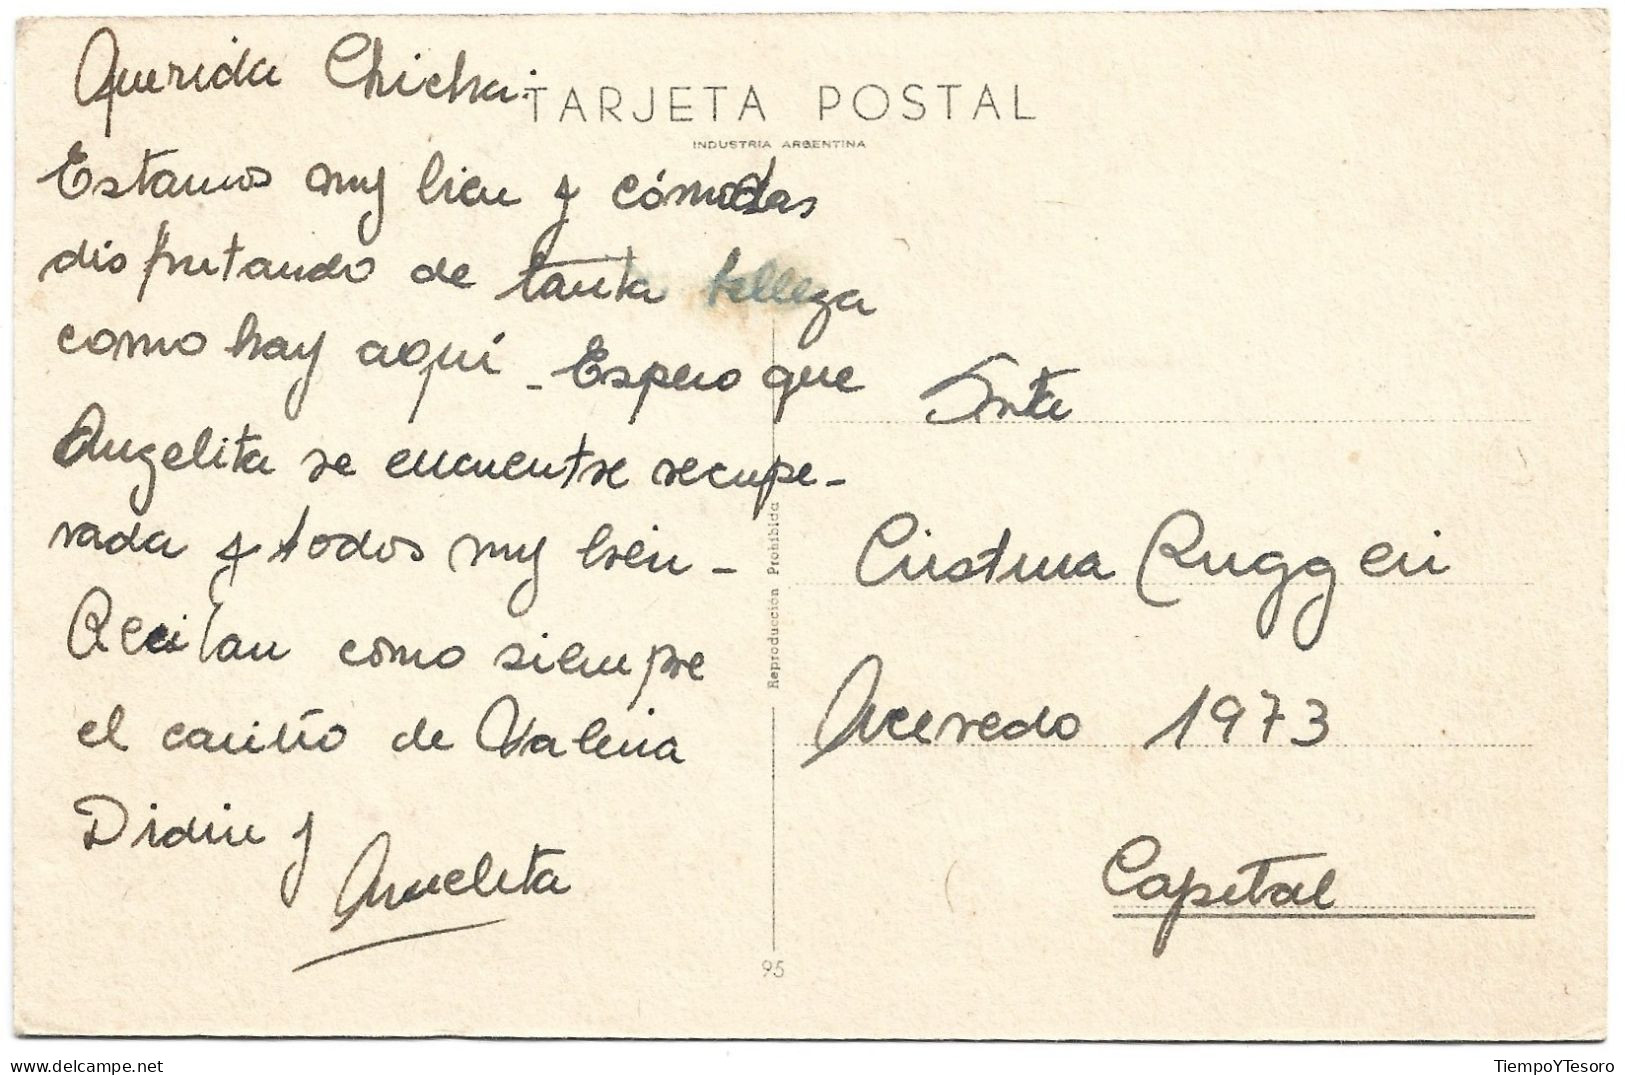 Querida Chicha:
TARJETA POSTAL
INDUSTRIA ARGENTINA
Estamos muy bien y cómodas
disfrutando de tanta belleza
como hay aquí - Espero que
Angelita se encuentre recupe-
rada y todos muy bien -
Reciban como siempre
el cariño de Valeria
Didin y
Anuchita
Srta
Cristina Ruggeri
Acevedo 1973
Capital
Reproducción Prohibida
95
TiempoYTesoro